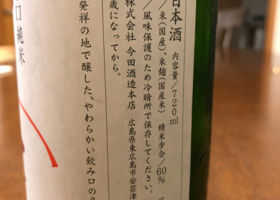 日本酒
内容量/720ml
米(国産)、米麹(国産米) 精米歩合/60%
/風味保護のため冷暗所で保存してください。
株式会社 今田酒造本店 広島県東広島市安芸津
歳になってから。
発祥の地で醸した、やわらかい飲み口の
口純米